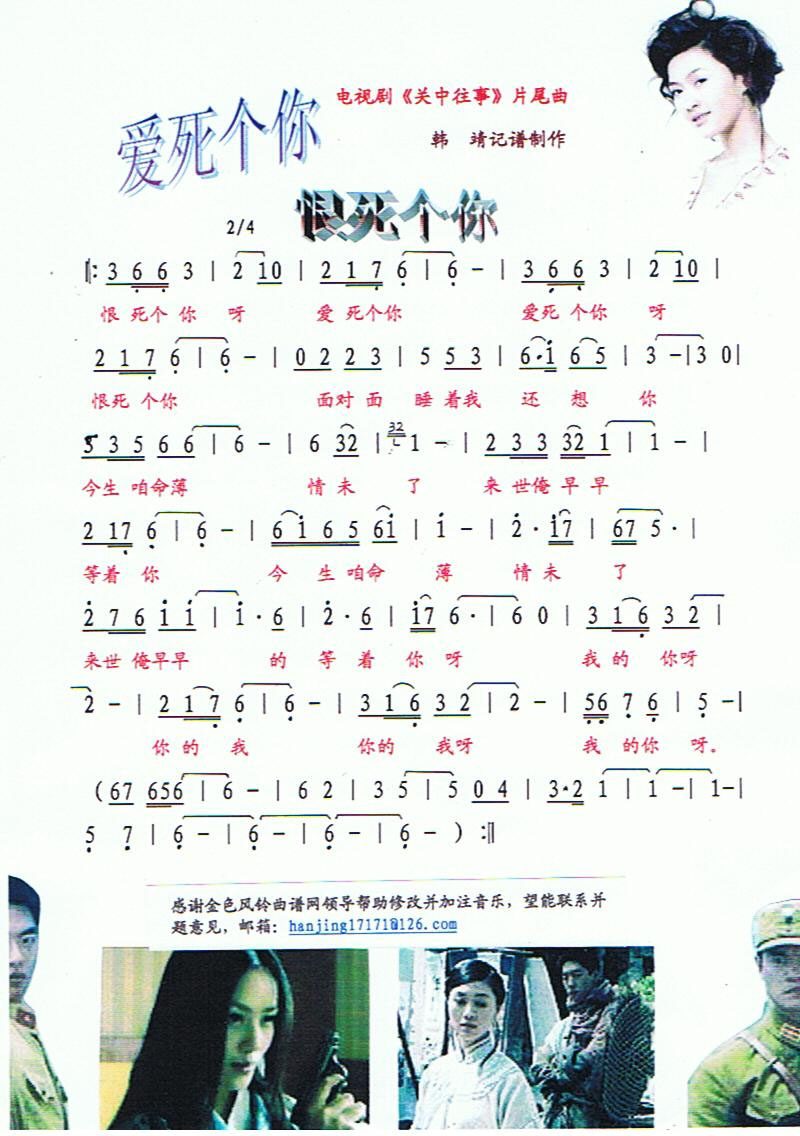 爱死个你
电视剧《关中往事》片尾曲
韩 靖记谱制作
恨死个你
2/4
‖: 3 6 6 3 | 2 1 0 | 2 1 7 6 | 6 - | 3 6 6 3 | 2 1 0 |
恨 死个 你 呀 爱 死个你 爱死 个你 呀
2 1 7 6 | 6 - | 0 2 2 3 | 5 5 3 | 6·1 6 5 | 3 - | 3 0 |
恨死 个你 面对 面 睡 着我 还 想 你
5 3 5 6 6 | 6 - | 6 32 | 32 1 - | 2 3 3 32 1 | 1 - |
今生 咱命薄 情 未 了 来 世俺 早 早
2 17 6 | 6 - | 6 1 6 5 61 | 1 - | 2 · 17 | 67 5 · |
等着 你 今 生 咱命 薄 情 未 了
2 7 6 1 1 | 1 · 6 | 2 · 6 | 17 6 · | 6 0 | 3 1 6 3 2 |
来世 俺早早 的 等 着 你 呀 我 的 你呀
2 - | 2 1 7 6 | 6 - | 3 1 6 3 2 | 2 - | 56 7 6 | 5 - |
你 的 我 你的 我呀 我 的你 呀。
( 67 656 | 6 - | 6 2 | 3 5 | 5 0 4 | 3·2 1 | 1 - | 1 - |
5 7 | 6 - | 6 - | 6 - | 6 - ) :‖
感谢金色风铃曲谱网领导帮助修改并加注音乐，望能联系并
题意见，邮箱：hanjing17171@126.com